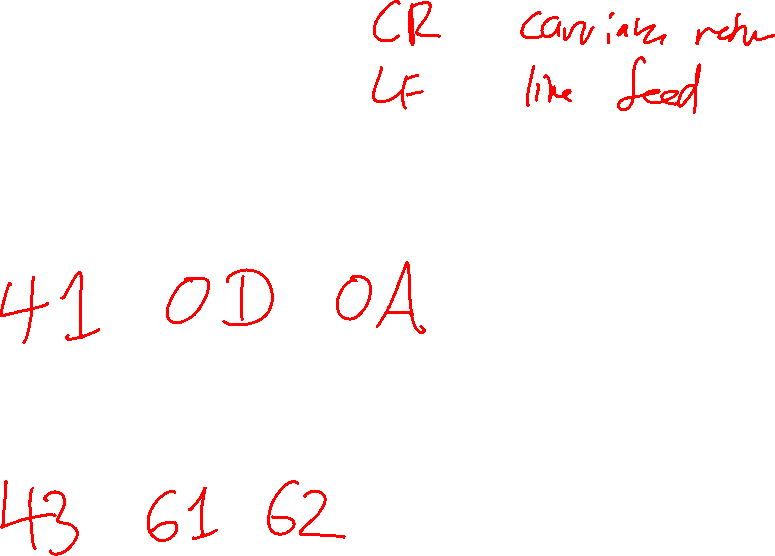 CR carriage return
LF line feed
41 0D 0A
43 61 62